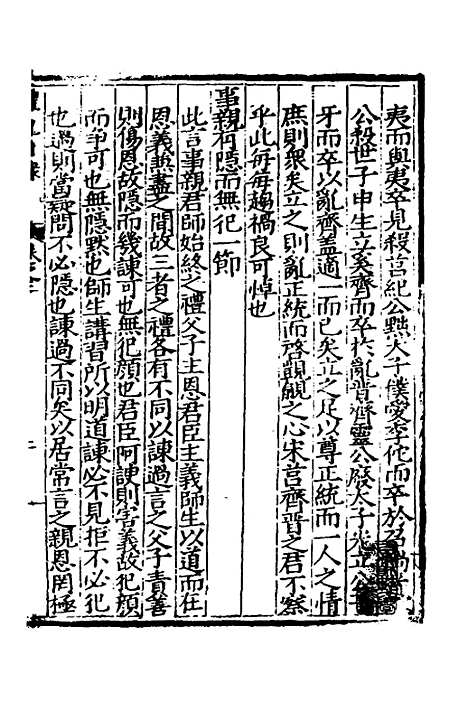 夷而與夷卒見殺莒紀公黜太子僕愛季佗而卒於
公殺世子申生立奚齊而卒於亂晋齊靈公廢太子光立公子
牙而卒以亂齊盖適一而已矣立之足以尊正統而一人之情
庶則衆矣立之則亂正統而啓覬覦之心宋莒齊晋之君不察
乎此毎毎趨禍良可悼也
事親有隠而無犯一節
此言事親君師始終之禮父子主恩君臣主義師生以道而在
恩義兼盡之間故三者之禮各有不同以諌過言之父子責善
則傷恩故隠而幾諌可也無犯顔也君臣阿諛則害義故犯顔
而争可也無隠黙也師生講習所以明道諌必不見拒不必犯
也過則當疑問不必隠也諌過不同矣以居常言之親恩罔極